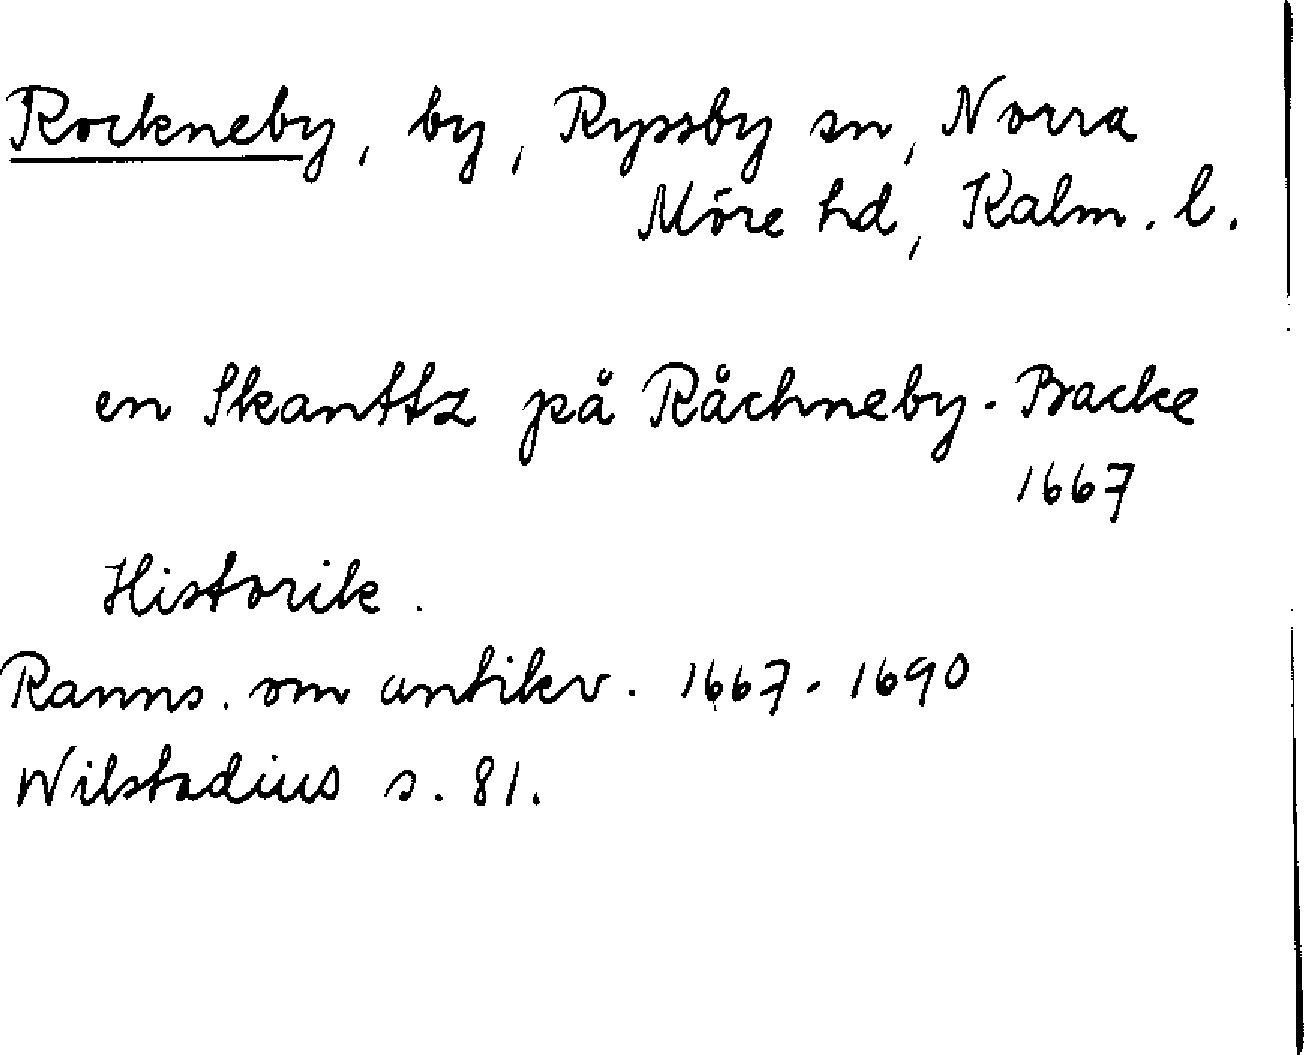 Rockneby, by, Ryssby sn, Norra
Möre hd, Kalm. l.
en Skanttz på Råchneby-Backe
1667
Historik.
Ranns. om antikv. 1667-1690
Wilstadius s. 81.